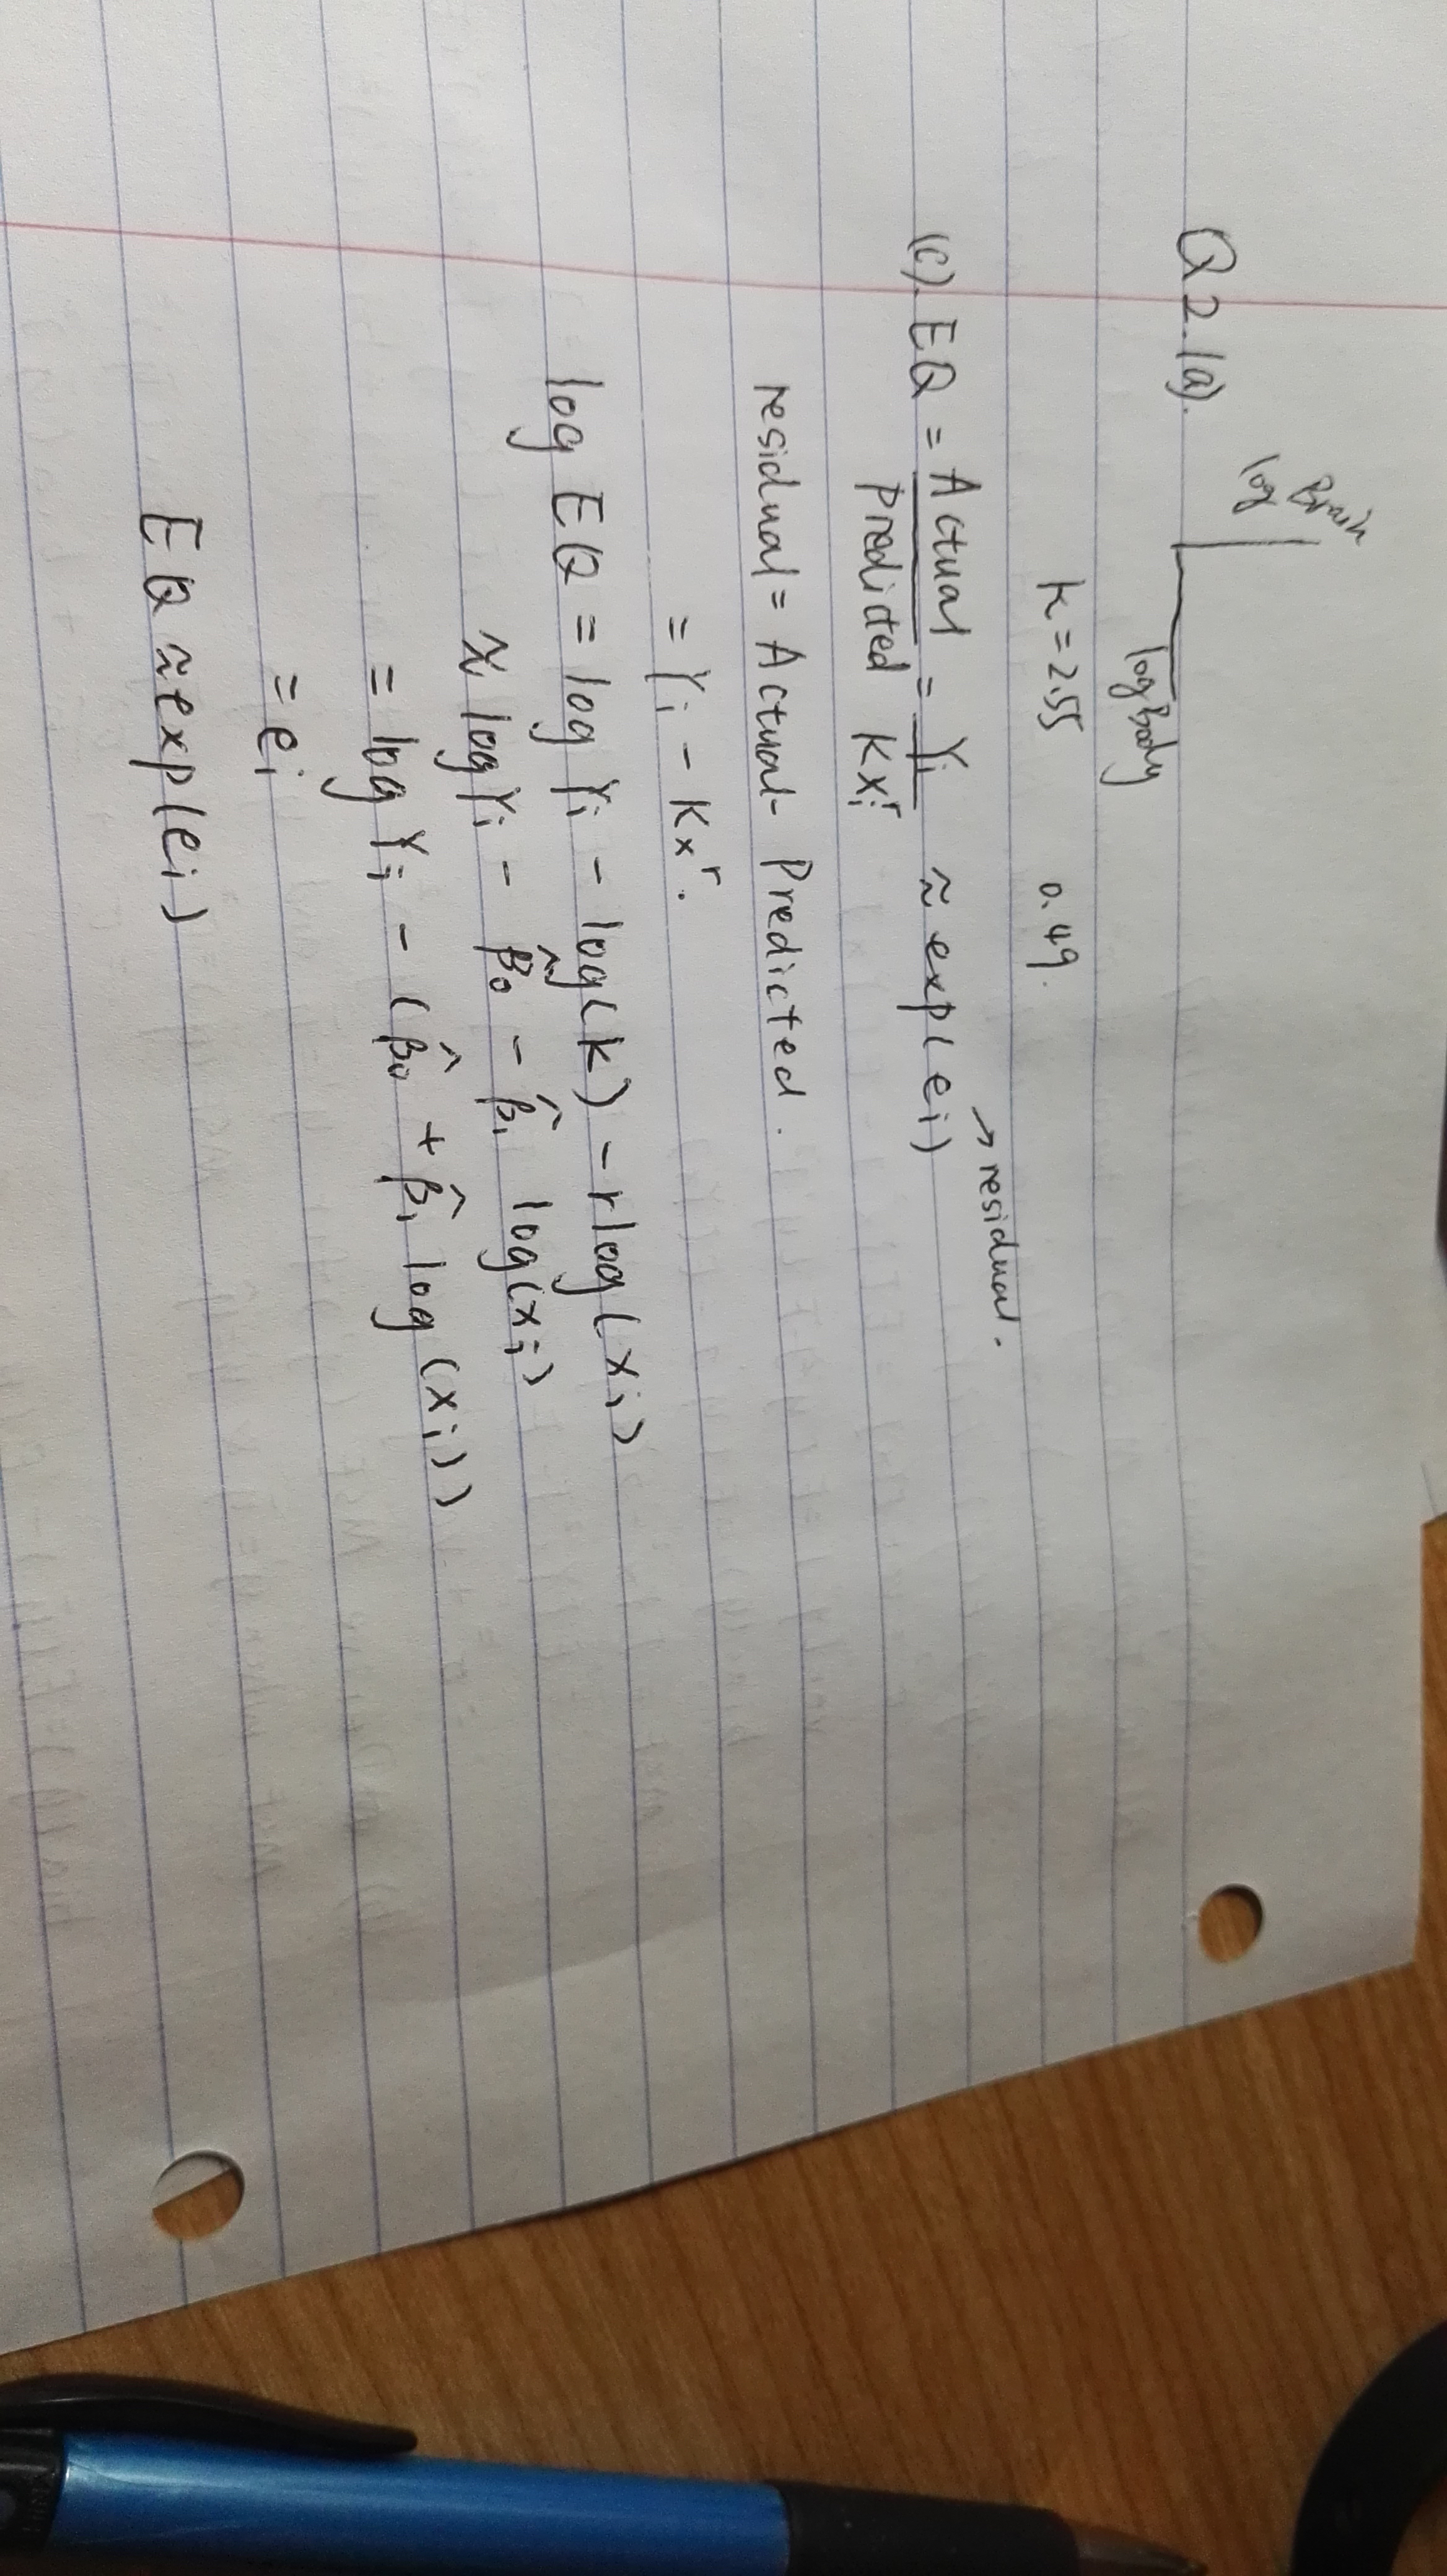 Q2. (a).
log Brain
log Body
k = 2.55 0.49.
→ residual.
(c). EQ = Actual / Predicted = Yi / Kxi^r ≈ exp(ei)
residual = Actual - Predicted.
= Yi - Kx^r.
log EQ = log Yi - log(k) - rlog(xi)
≈ log Yi - β̂0 - β̂1 log(xi)
= log Yi - (β̂0 + β̂1 log(xi))
= ei
EQ ≈ exp(ei)